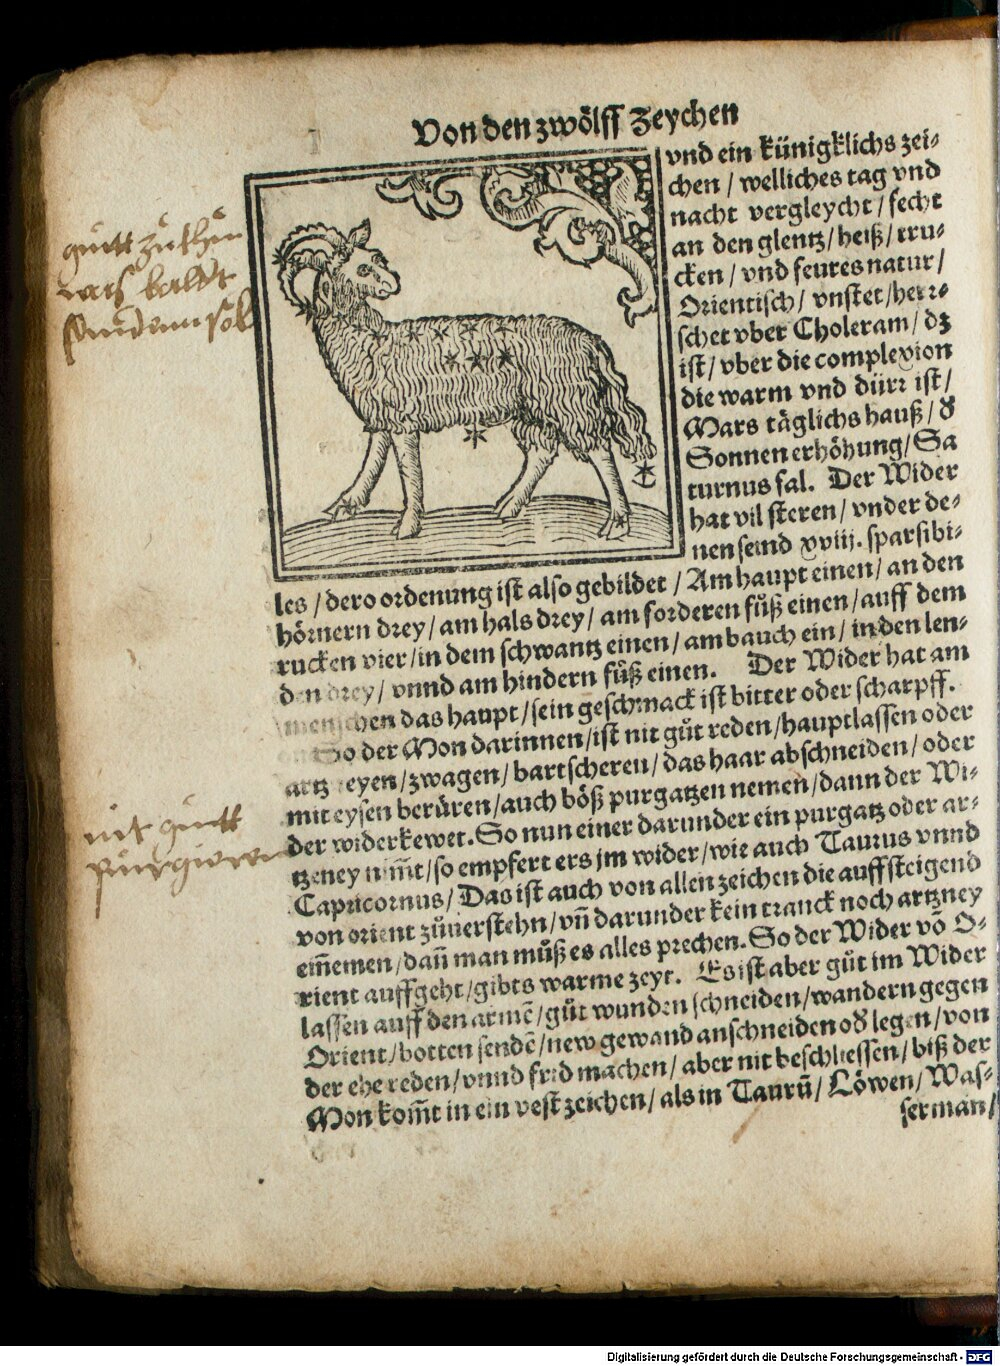 Von den zwölff Zeychen
vnd ein künigklichs zei-
chen / welliches tag vnd
nacht vergleycht / secht
an den glentz / heiß / tru-
cken / vnd feures natur /
Orientisch / vnstet / herr-
schet vber Choleram / dz
ist / vber die complexion
die warm vnd dürr ist /
Mars täglichs hauß / d̄
Sonnen erhöhung / Sa
turnus fal. Der Wider
hat vil steren / vnder de-
nen seind xviij. sparsibi-
les / dero ordenung ist also gebildet / Am haupt einen / an den
hörnern drey / am hals drey / am forderen fůß einen / auff dem
rucken vier / in dem schwantz einen / am bauch ein / in den len-
den drey / vnnd am hindern fůß einen. Der Wider hat am
menschen das haupt / sein geschmack ist bitter oder scharpff.
So der Mon darinnen / ist nit gůt reden / hauptlassen oder
artzneyen / zwagen / bartscheren / das haar abschneiden / oder
mit eysen berüren / auch böß purgatzen nemen / dann der Wi-
der widerkewet. So nun einer darunder ein purgatz oder ar-
tzeney nim̄t / so empfert ers jm wider / wie auch Taurus vnnd
Capricornus / Das ist auch von allen zeichen die auffsteigend
von orient zůuerstehn / vn̄ darunder kein tranck noch artzney
ein̄emen / dan̄ man můß es alles prechen. So der Wider vō O-
rient auffgeht / gibts warme zeyt. Es ist aber gůt im Wider
lassen auff den armē / gůt wunden schneiden / wandern gegen
Orient / botten sendē / new gewand anschneiden od̄ legen / von
der ehe reden / vnnd frid machen / aber nit beschliessen / biß der
Mon kom̄t in ein vest zeichen / als in Taurū / Löwen / Was-
serman /
nit gutt
purgieren
Digitalisierung gefördert durch die Deutsche Forschungsgemeinschaft - DFG